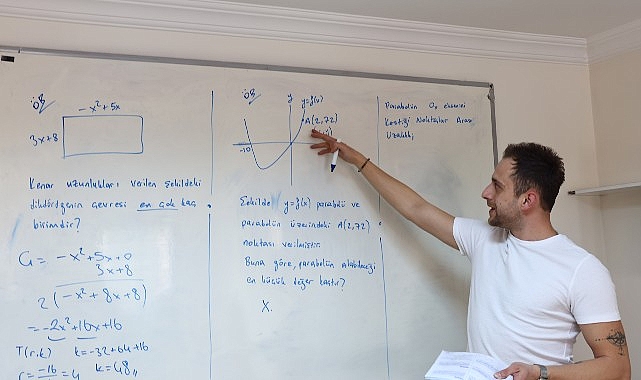 ÖR
-x²+5x
3x+8
Kenar uzunlukları verilen şekildeki
dikdörtgenin çevresi en çok kaç
birimdir?
Ç = -x²+5x+0
3x+8
2(-x²+8x+8)
= -2x²+16x+16
T(r,k) k=-32+64+16
r = -16 = 4 k=48
ÖR
y y=f(x)
A(2,72)
-10
Şekilde y=f(x) parabolü ve
parabolün üzerindeki A(2,72)
noktası verilmiştir.
Buna göre, parabolün alabileceği
en küçük değer kaçtır?
X.
Parabolün Ox eksenini
Kestiği Noktalar Arası
Uzaklık;